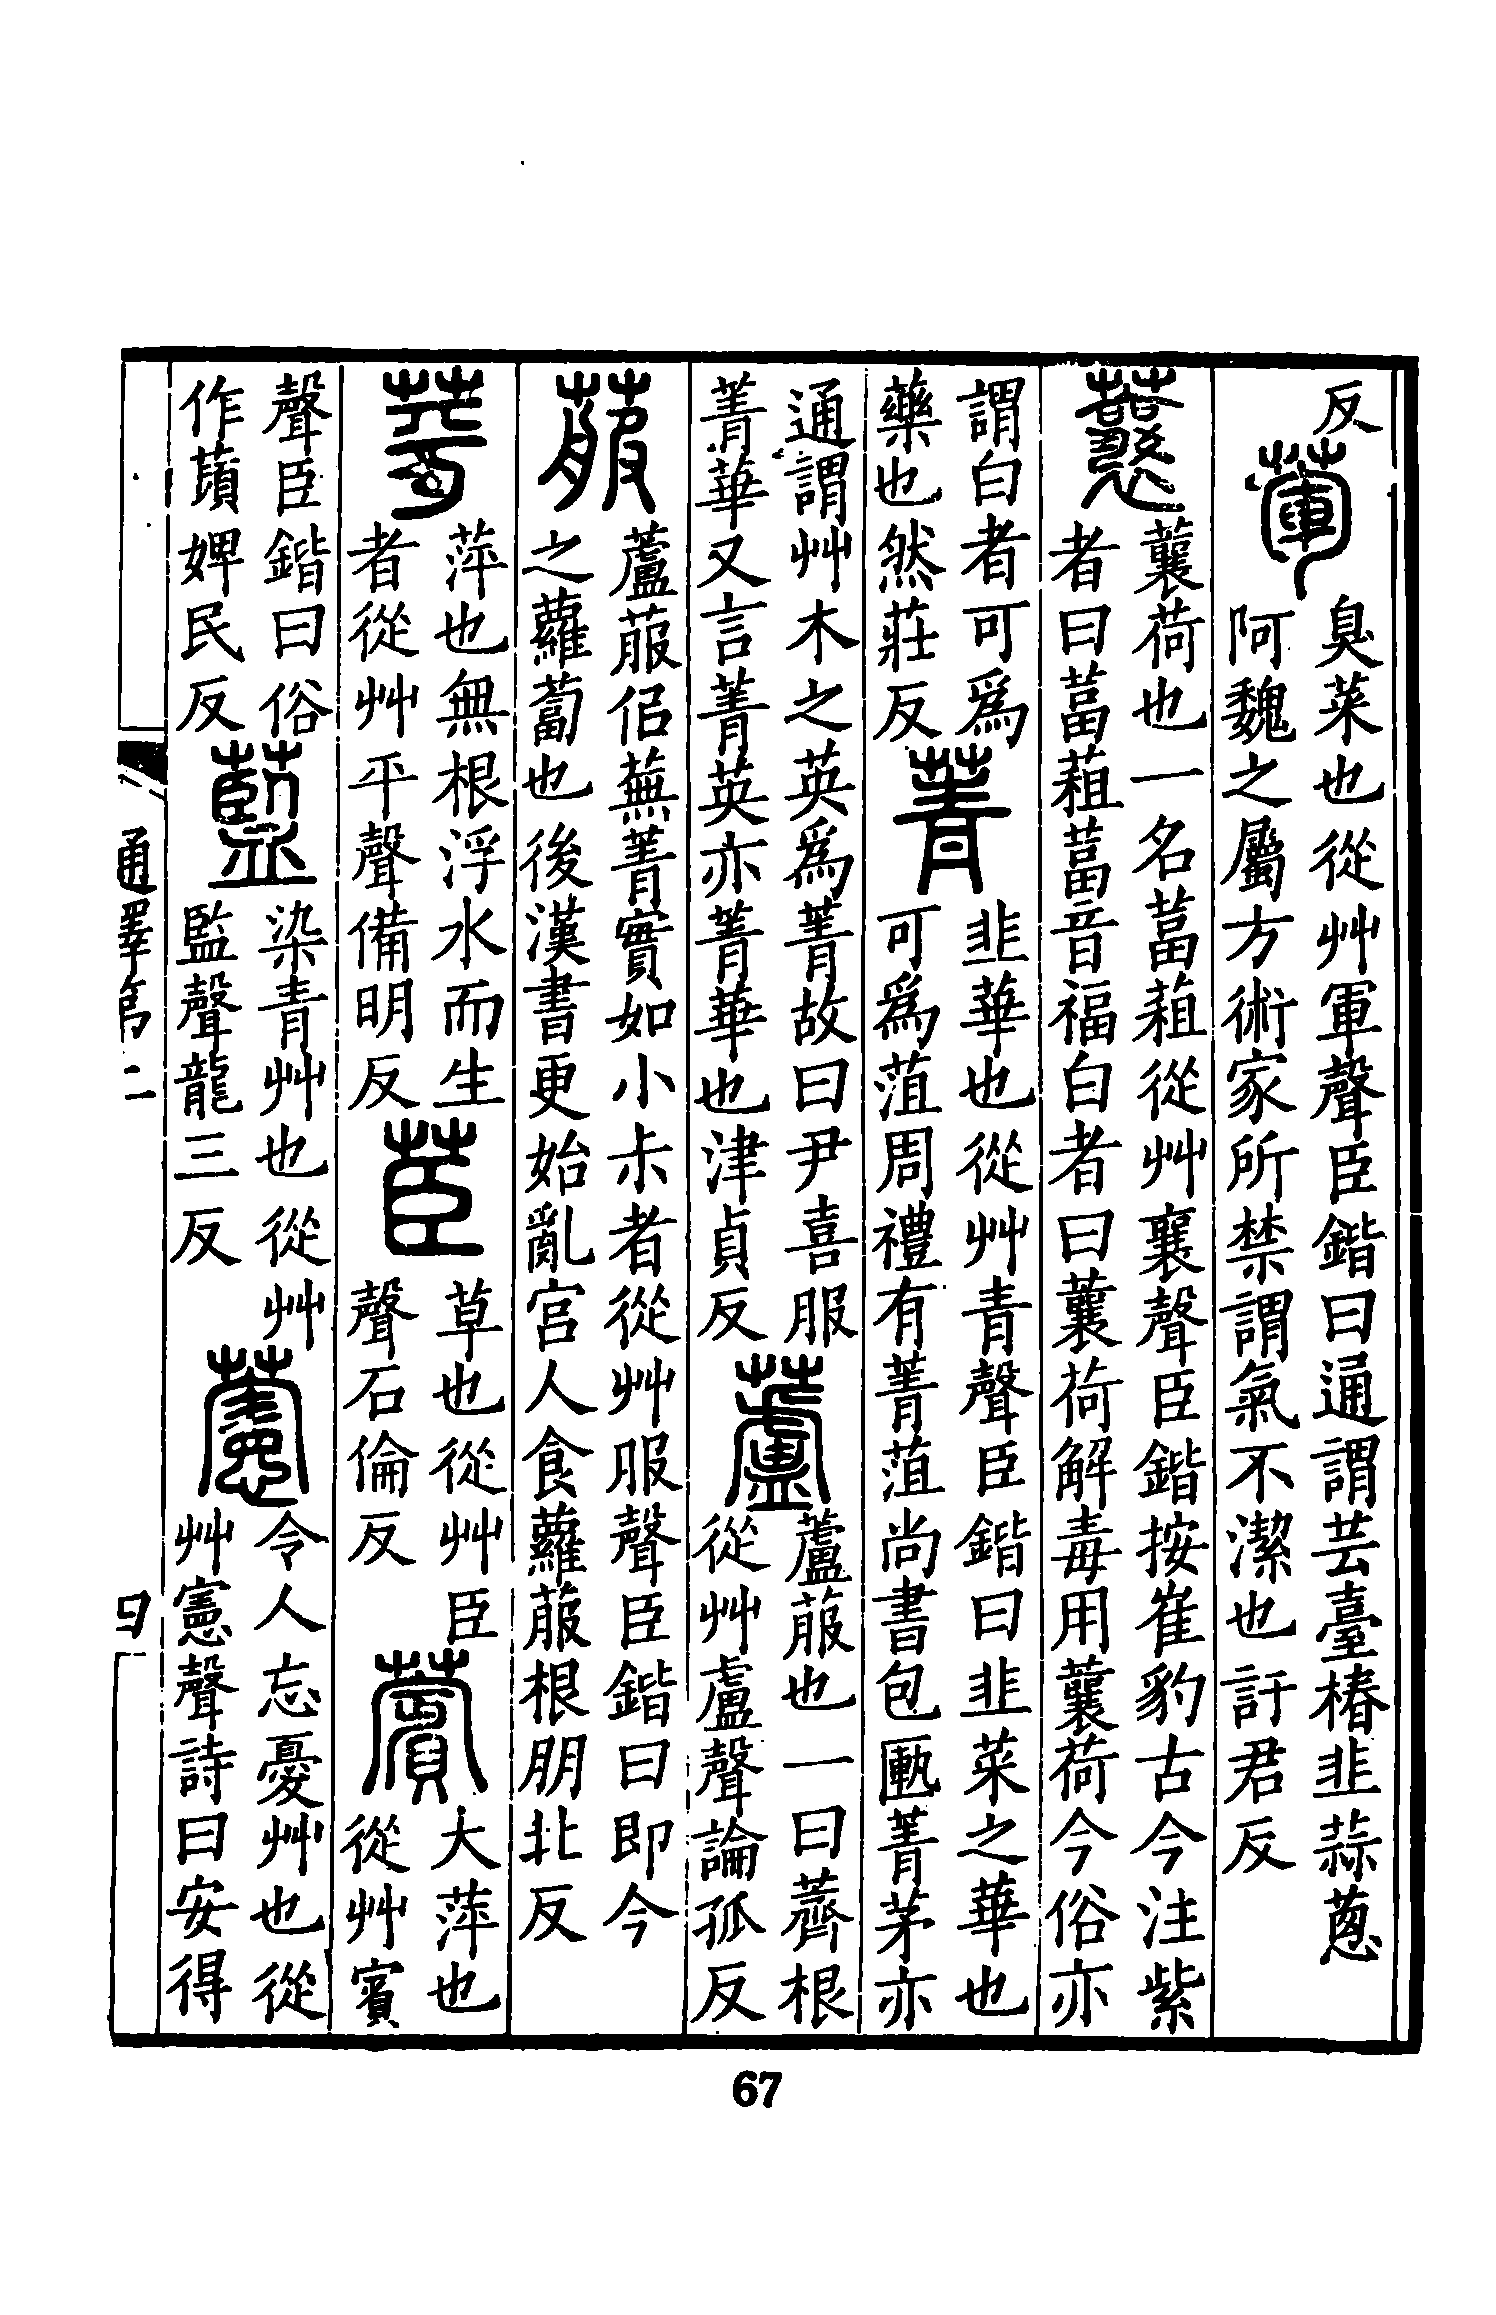 反
葷
臭菜也從艸軍聲臣鍇曰通謂芸臺椿韭蒜蔥
阿魏之屬方術家所禁謂氣不潔也訏君反
蘘
蘘荷也一名葍蒩從艸襄聲臣鍇按崔豹古今注紫
者曰葍蒩葍音福白者曰蘘荷解毒用蘘荷今俗亦
謂白者可爲
藥也然莊反
菁
韭華也從艸青聲臣鍇曰韭菜之華也
可爲菹周禮有菁菹尚書包匭菁茅亦
通謂艸木之英爲菁故曰尹喜服
菁華又言菁英亦菁華也津貞反
蘆
蘆菔也一曰薺根
從艸盧聲論孤反
菔
蘆菔佀蕪菁實如小尗者從艸服聲臣鍇曰即今
之蘿蔔也後漢書更始亂宮人食蘿菔根朋北反
苹
萍也無根浮水而生
者從艸平聲備明反
茞
草也從艸臣
聲石倫反
薲
大萍也
從艸賓
聲臣鍇曰俗
作蘋婢民反
藍
染青艸也從艸
監聲龍三反
藼
令人忘憂艸也從
艸憲聲詩曰安得
通釋第二
67